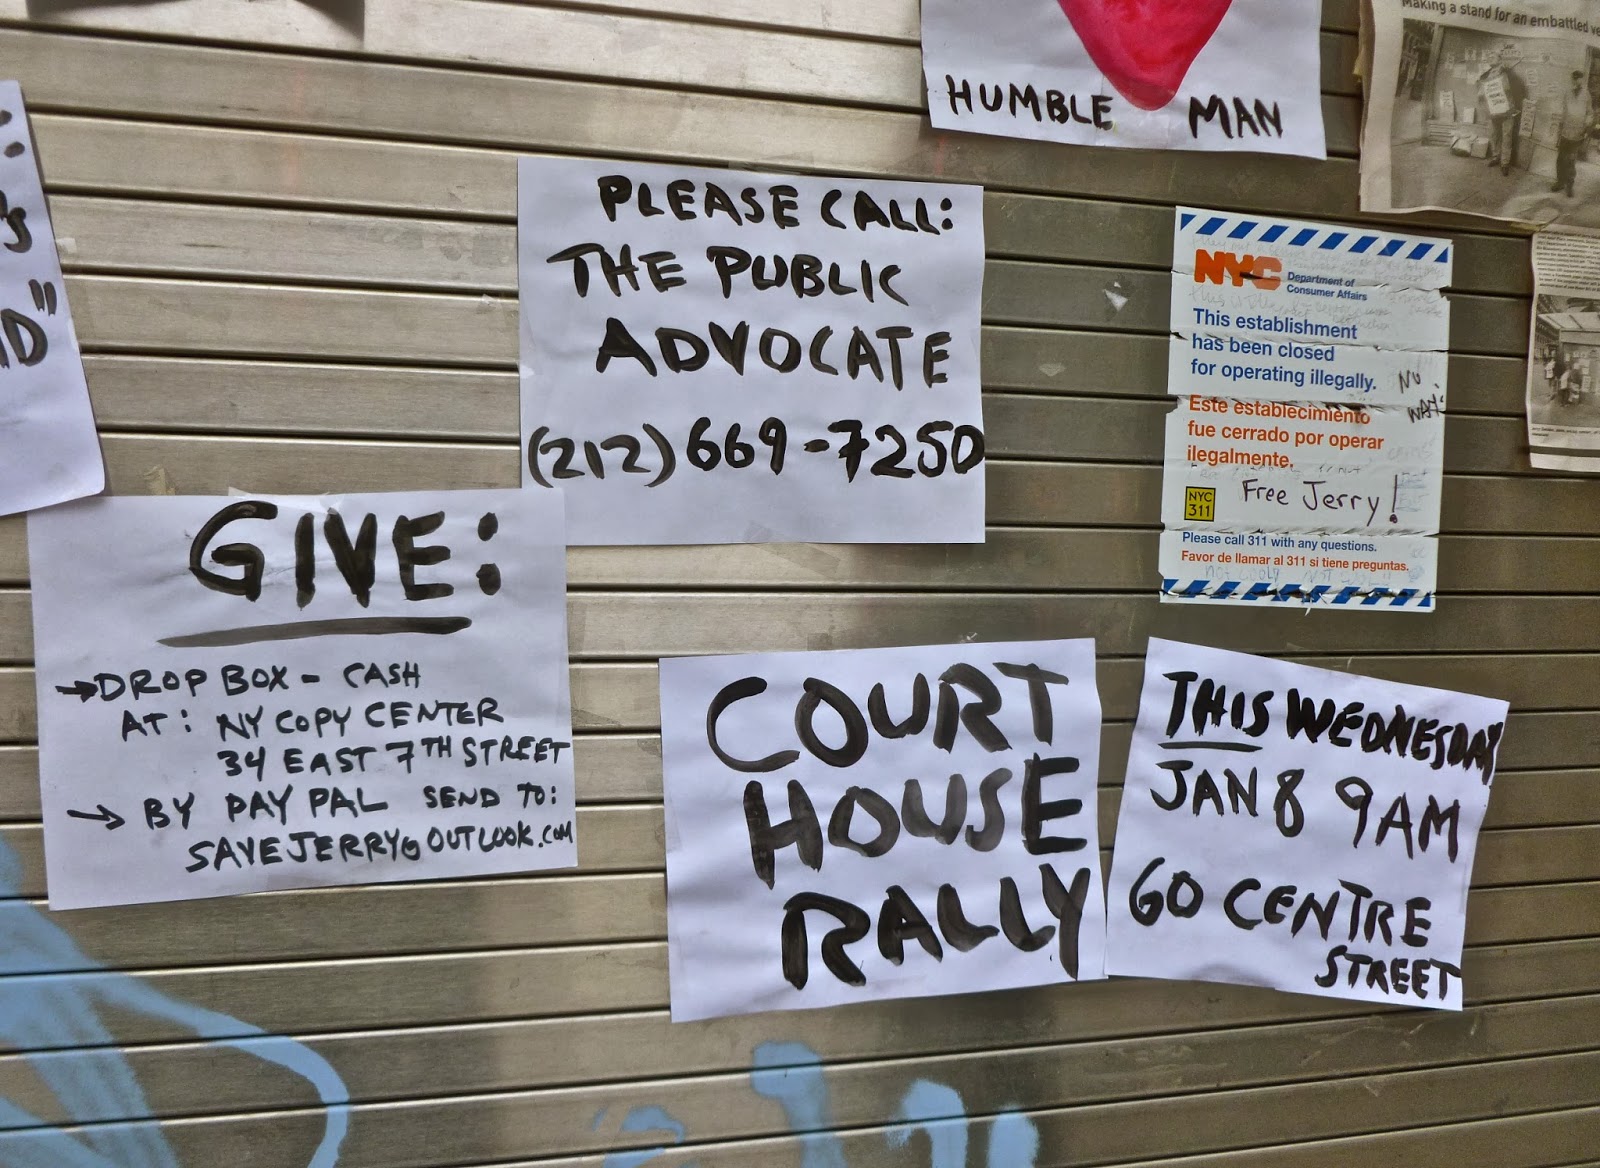 HUMBLE MAN
Making a stand for an embattled
PLEASE CALL:
THE PUBLIC
ADVOCATE
(212) 669-7250
NYC Department of
Consumer Affairs
This establishment
has been closed
for operating illegally.
NO
WAY!
Este establecimiento
fue cerrado por operar
ilegalmente.
NYC
311
Free Jerry!
Please call 311 with any questions.
Favor de llamar al 311 si tiene preguntas.
GIVE:
→DROP BOX - CASH
AT: NY COPY CENTER
34 EAST 7TH STREET
→ BY PAY PAL SEND TO:
SAVEJERRY@OUTLOOK.COM
COURT
HOUSE
RALLY
THIS WEDNESDAY
JAN 8 9AM
60 CENTRE
STREET